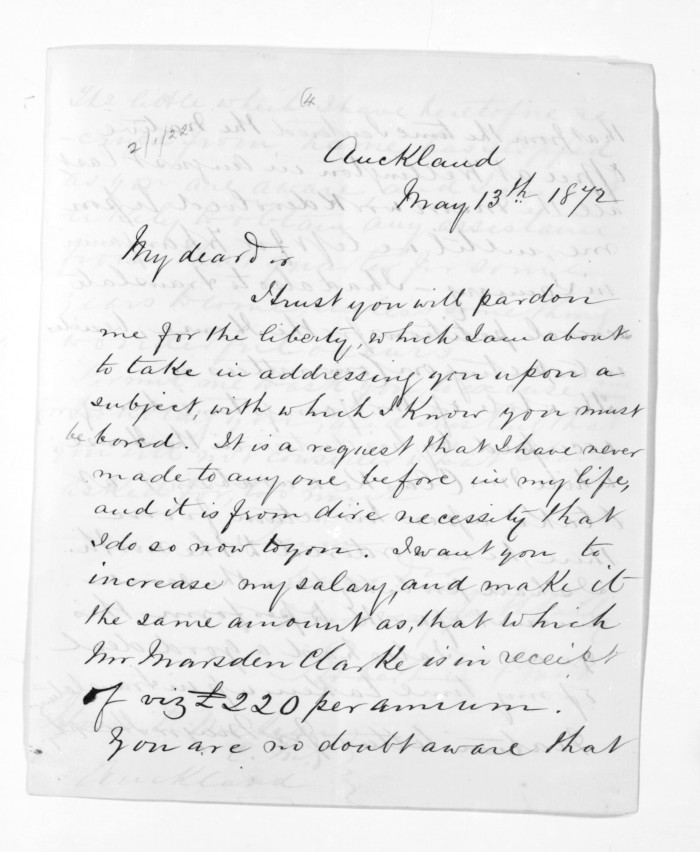 (4
Auckland
May 13th. 1872
My dear Sir
I trust you will pardon
me for the liberty, which I am about
to take in addressing you upon a
subject, with which I know you must
be bored. It is a request that I have never
made to any one before in my life,
and it is from dire necessity that
I do so now to you. I want you to
increase my salary, and make it
the same amount as, that which
Mr. Marsden Clarke is in receipt
of viz £220 per annum.
You are no doubt aware that